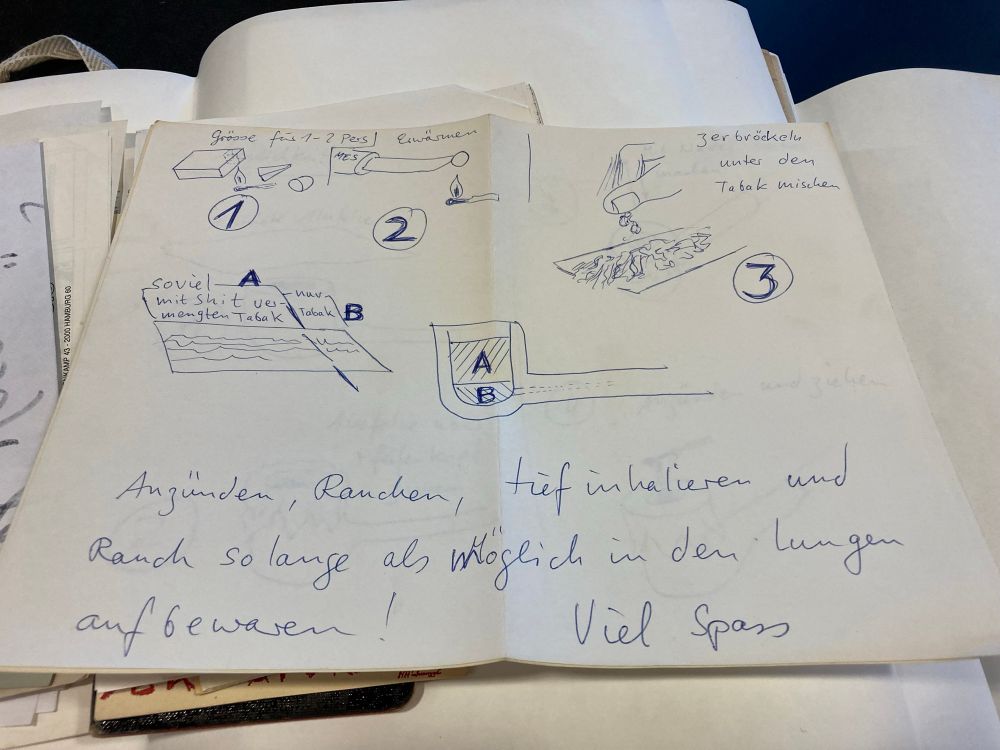 Grösse für 1-2 Pers
Erwärmen
MES
1
2
zerbröckeln
unter den
Tabak mischen
3
soviel
mit Shit ver-
mengten Tabak
A
nur
Tabak
B
A
B
Anzünden, Rauchen, tief inhalieren und
Rauch so lange als Möglich in den Lungen
aufbewaren! Viel Spass
KAMP 43 - 2000 HAMBURG 60